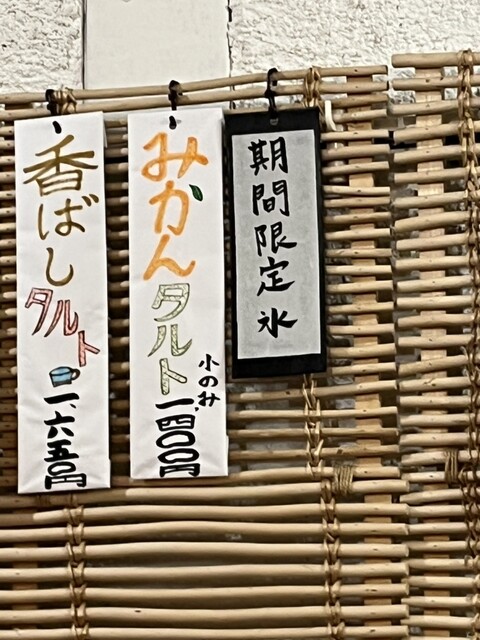 期間限定氷
みかんタルト
小のみ
一、四〇〇円
香ばしタルト
一、六五〇円